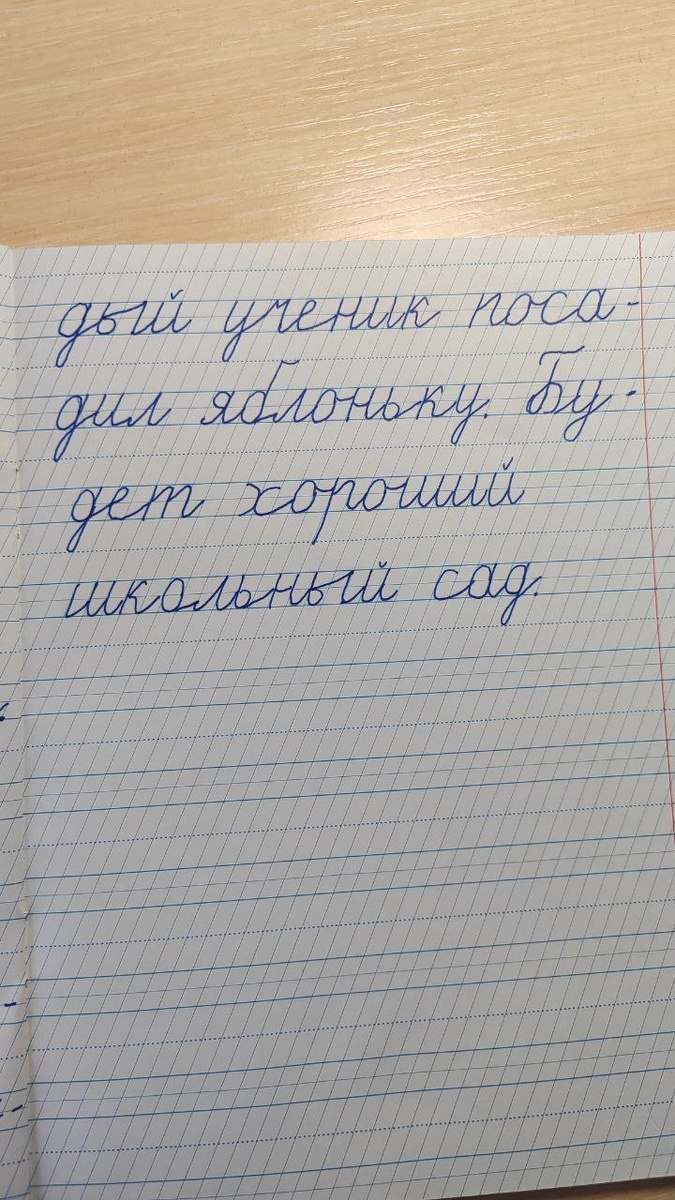 дый ученик поса-
дил яблоньку. Бу-
дет хороший
школьный сад.